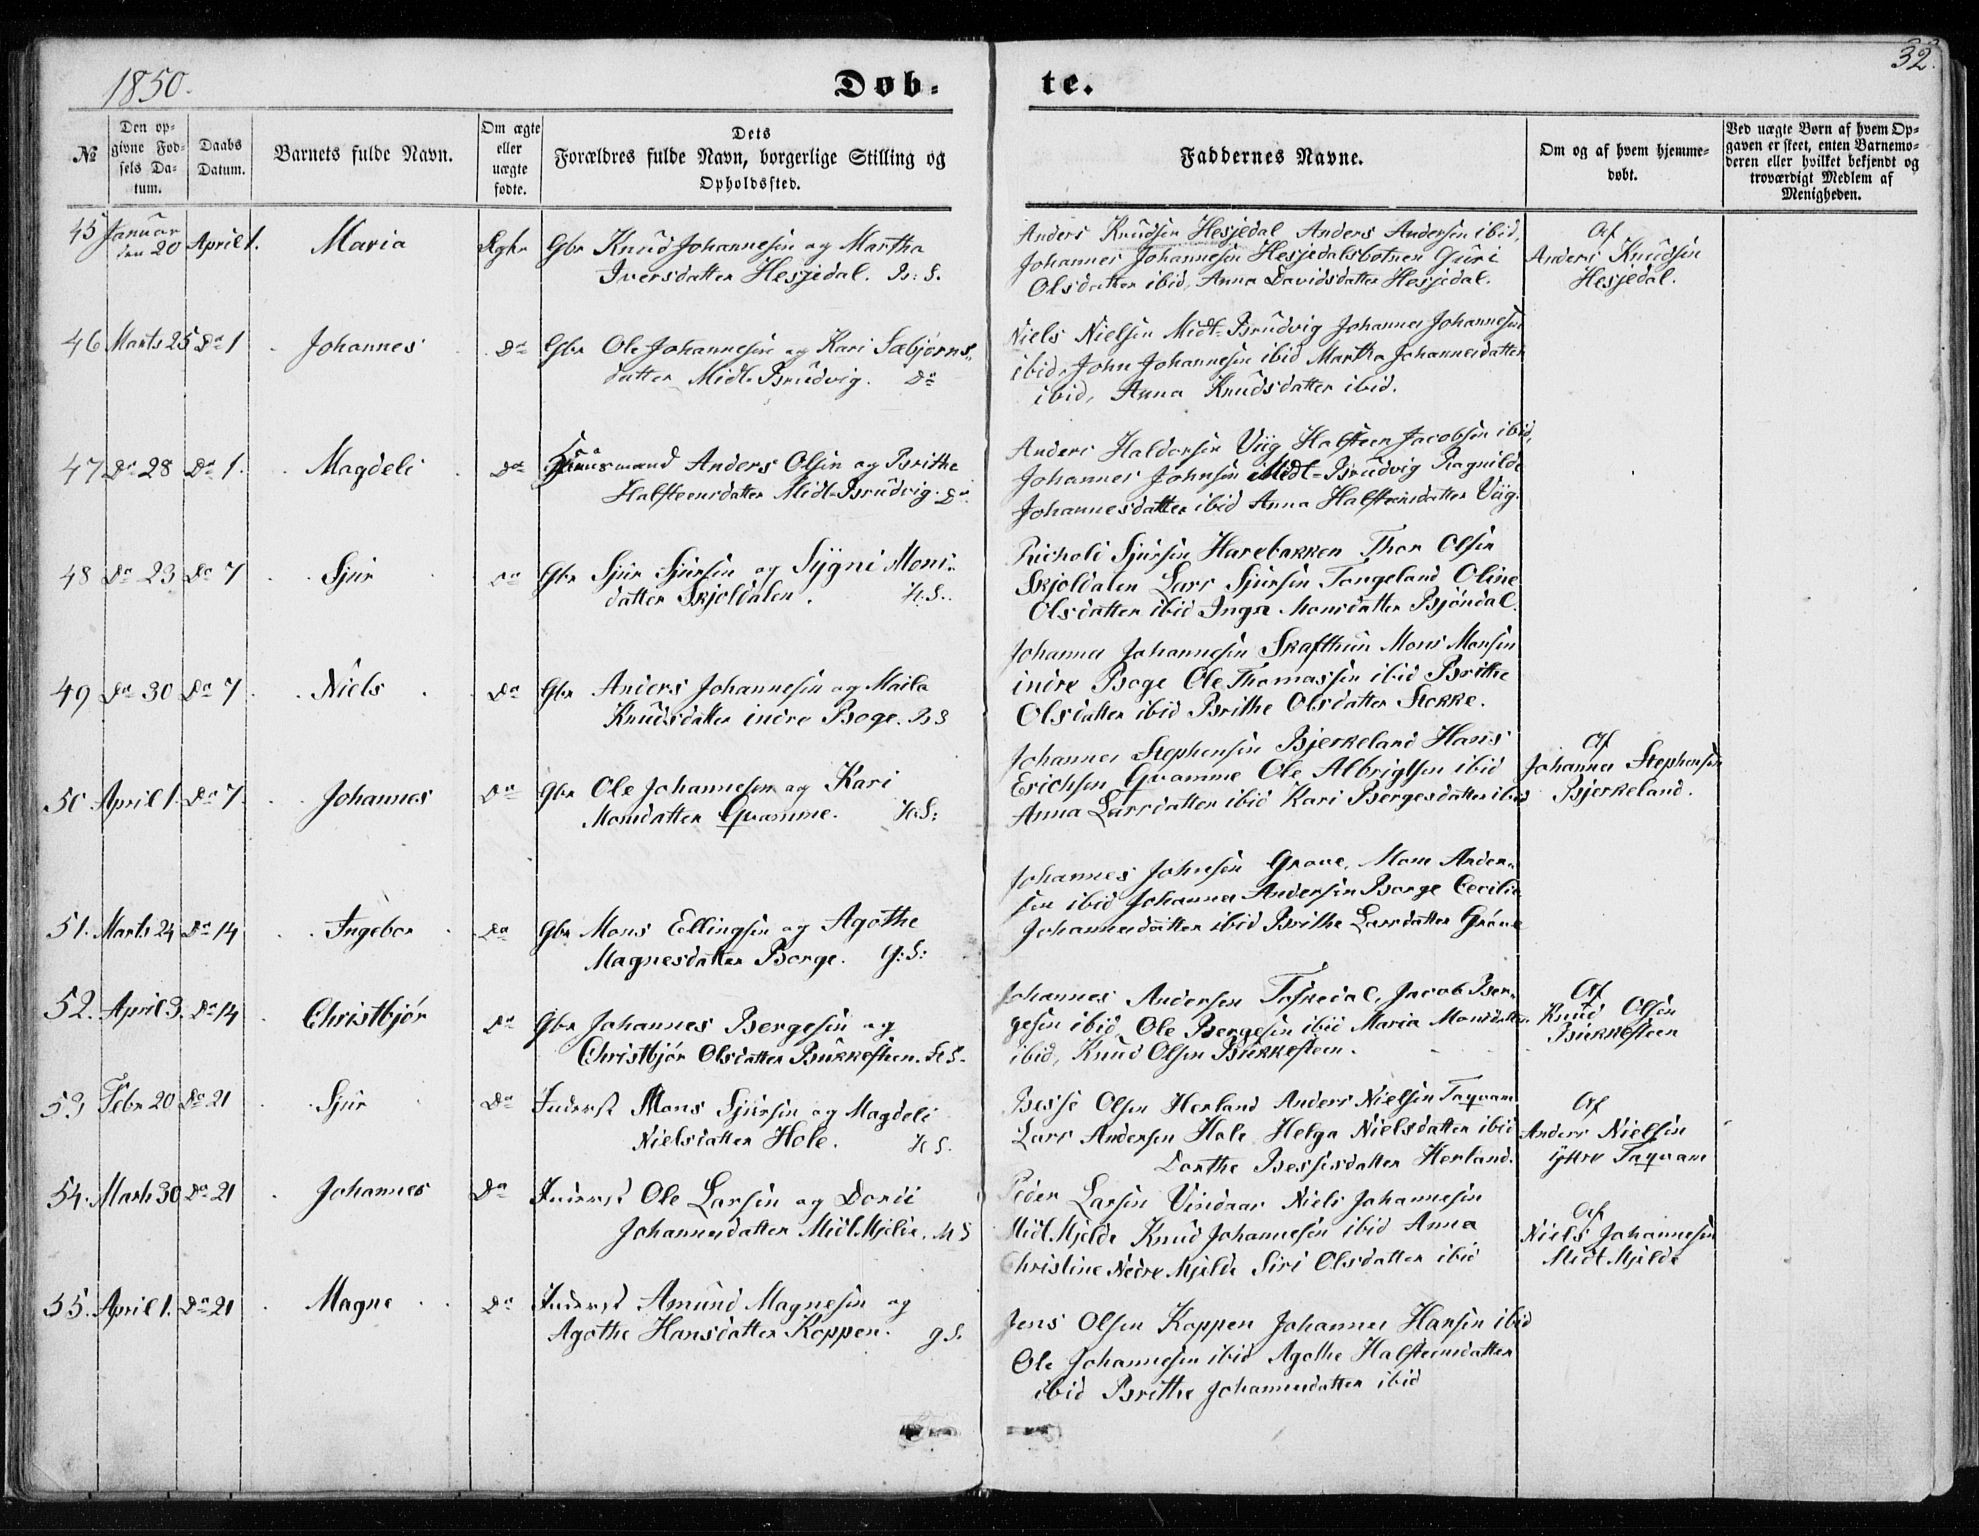 1850.
Døb-
te.
32.
№
Den op-
givne Fød-
sels Da-
tum.
Daabs
Datum.
Barnets fulde Navn.
Om ægte
eller
uægte
fødte.
Dets
Forældres fulde Navn, borgerlige Stilling og
Opholdssted.
Faddernes Navne.
Om og af hvem hjemme-
døbt.
Ved uægte Børn af hvem Op-
gaven er skeet, enten Barnemo-
deren eller hvilket bekjendt og
troværdigt Medlem af
Menigheden.
45 Januar
den 20 April 1. Maria Ægte Gbr Knud Johannesen og Martha
Iversdatter Hesjedal. B: S.
Anders Knudsen Hesjedal Anders Andersen ibid,
Johannes Johannesen Hesjedalsbotnen Guri
Olsdatter ibid, Anna Davidsdatter Hesjedal.
Af
Anders Knudsen
Hesjedal.
46 Marts 25 Do 1 Johannes Do Gbr Ole Johannesen og Kari Sæbjørns
datter Midt-Brudvig. Do
Niels Nielsen Midt-Brudvig Johannes Johannesen
ibid, John Johannesen ibid Martha Johannesdatter
ibid, Anna Knudsdatter ibid.
47 Do 28 Do 1. Magdeli Do Huusmand Anders Olsen og Brithe
Halsteensdatter Midt-Brudvig. Do
Anders Haldorsen Viig Halsteen Jacobsen ibid,
Johannes Johnsen Midt-Brudvig Ragnilde
Johannesdatter ibid Anna Halsteensdatter Viig.
48 Do 23 Do 7 Sjur Do Gbr Sjur Sjursen og Sygni Mons-
datter Skjoldalen. H.S.
Sjursen Harebakken Thor Olsen
Skjoldalen Lars Sjursen Tangeland Oline
Olsdatter ibid Inga Monsdatter Bjøndal.
49 Do 30 Do 7 Niels Do Gbr Anders Johannesen og Maila
Knudsdatter indre Boge. B S
Johannes Johannesen Skafthun Mons Monsen
indre Boge Ole Thomassen ibid Brithe
Olsdatter ibid Brithe Olsdatter Stokke.
50 April 1. Do 7. Johannes Do Gbr Ole Johannesen og Kari
Monsdatter Qvamme. H.S:
Johannes Stephensen Bjerkeland Hans
Erichsen Qvamme Ole Albrigtsen ibid
Anna Larsdatter ibid Kari Bergesdatter ibid
Af
Johannes Stephensen
Bjerkeland.
51. Marts 24 Do 14 Ingebor Do Gbr Mons Ellingsen og Agothe
Magnesdatter Borge. G:S:
Johannes Johnsen Grøve, Mons Ander-
sen ibid Johannes Andersen Borge Cecilie
Johannesdatter ibid Brithe Larsdatter Grøve
52. April 3. Do 14 Christbjør Do Gbr Johannes Bergesen og
Christbjør Olsdatter Bukkesteen. H S.
Johannes Andersen Tosnedal, Jacob Ber-
gesen ibid, Ole Bergesen ibid Maria Monsdatter
ibid, Knud Olsen Bukkesteen.
Af
Knud Olsen
Bukkesteen
53 Febr 20 Do 21 Sjur Do Inderst Mons Sjursen og Magdeli
Nielsdatter Hole. H S.
Besse Olsen Herland Anders Nielsen Taqvam
Lars Andersen Hole Helga Nielsdatter ibid
Dorthe Bessesdatter Herland.
Af
Anders Nielsen
yttre Taqvam
54. Marts 30 Do 21 Johannes Do Inderst Ole Larsen og Dordi
Johannesdatter Midt Mjelde. H S
Peder Larsen Vindaar Niels Johannesen
Midt Mjelde Knud Johannesen ibid Anna
Christine Nedre Mjelde Siri Olsdatter ibid
Af
Niels Johannesen
Midt Mjelde
55. April 1. Do 21 Magne Do Inderst Amund Magnesen og
Agothe Hansdatter Koppen. G S.
Jens Olsen Koppen Johannes Hansen ibid
Ole Johannesen ibid Agothe Halsteensdatter
ibid Brithe Johannesdatter ibid